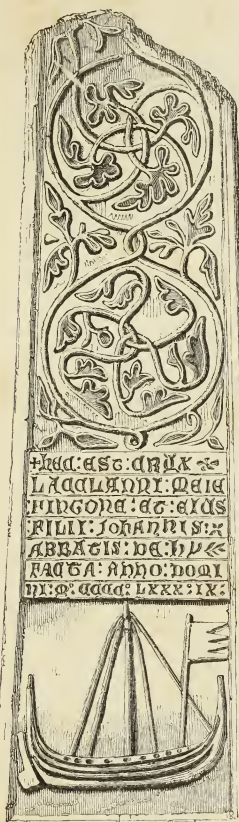 + hec : est : crux
Lacclanni : meic
fingone : et : eius
filii : Johannis :
abbatis : de : hy
facta : anno : domi
ni : mº : ccccº : lxxxº : ix :